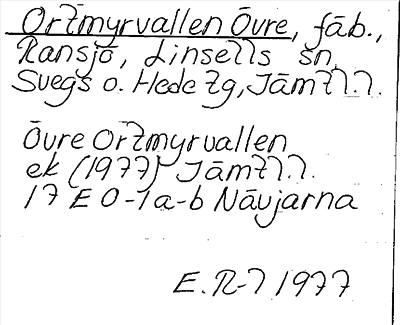 Ortmyrvallen Övre, fäb.,
Ransjö, Linsells sn,
Svegs o. Hede tg, Jämtl.l.
Övre Ortmyrvallen
ek (1977) Jämtl.l.
17 E 0-1 a-b Nävjarna
E. R-l 1977